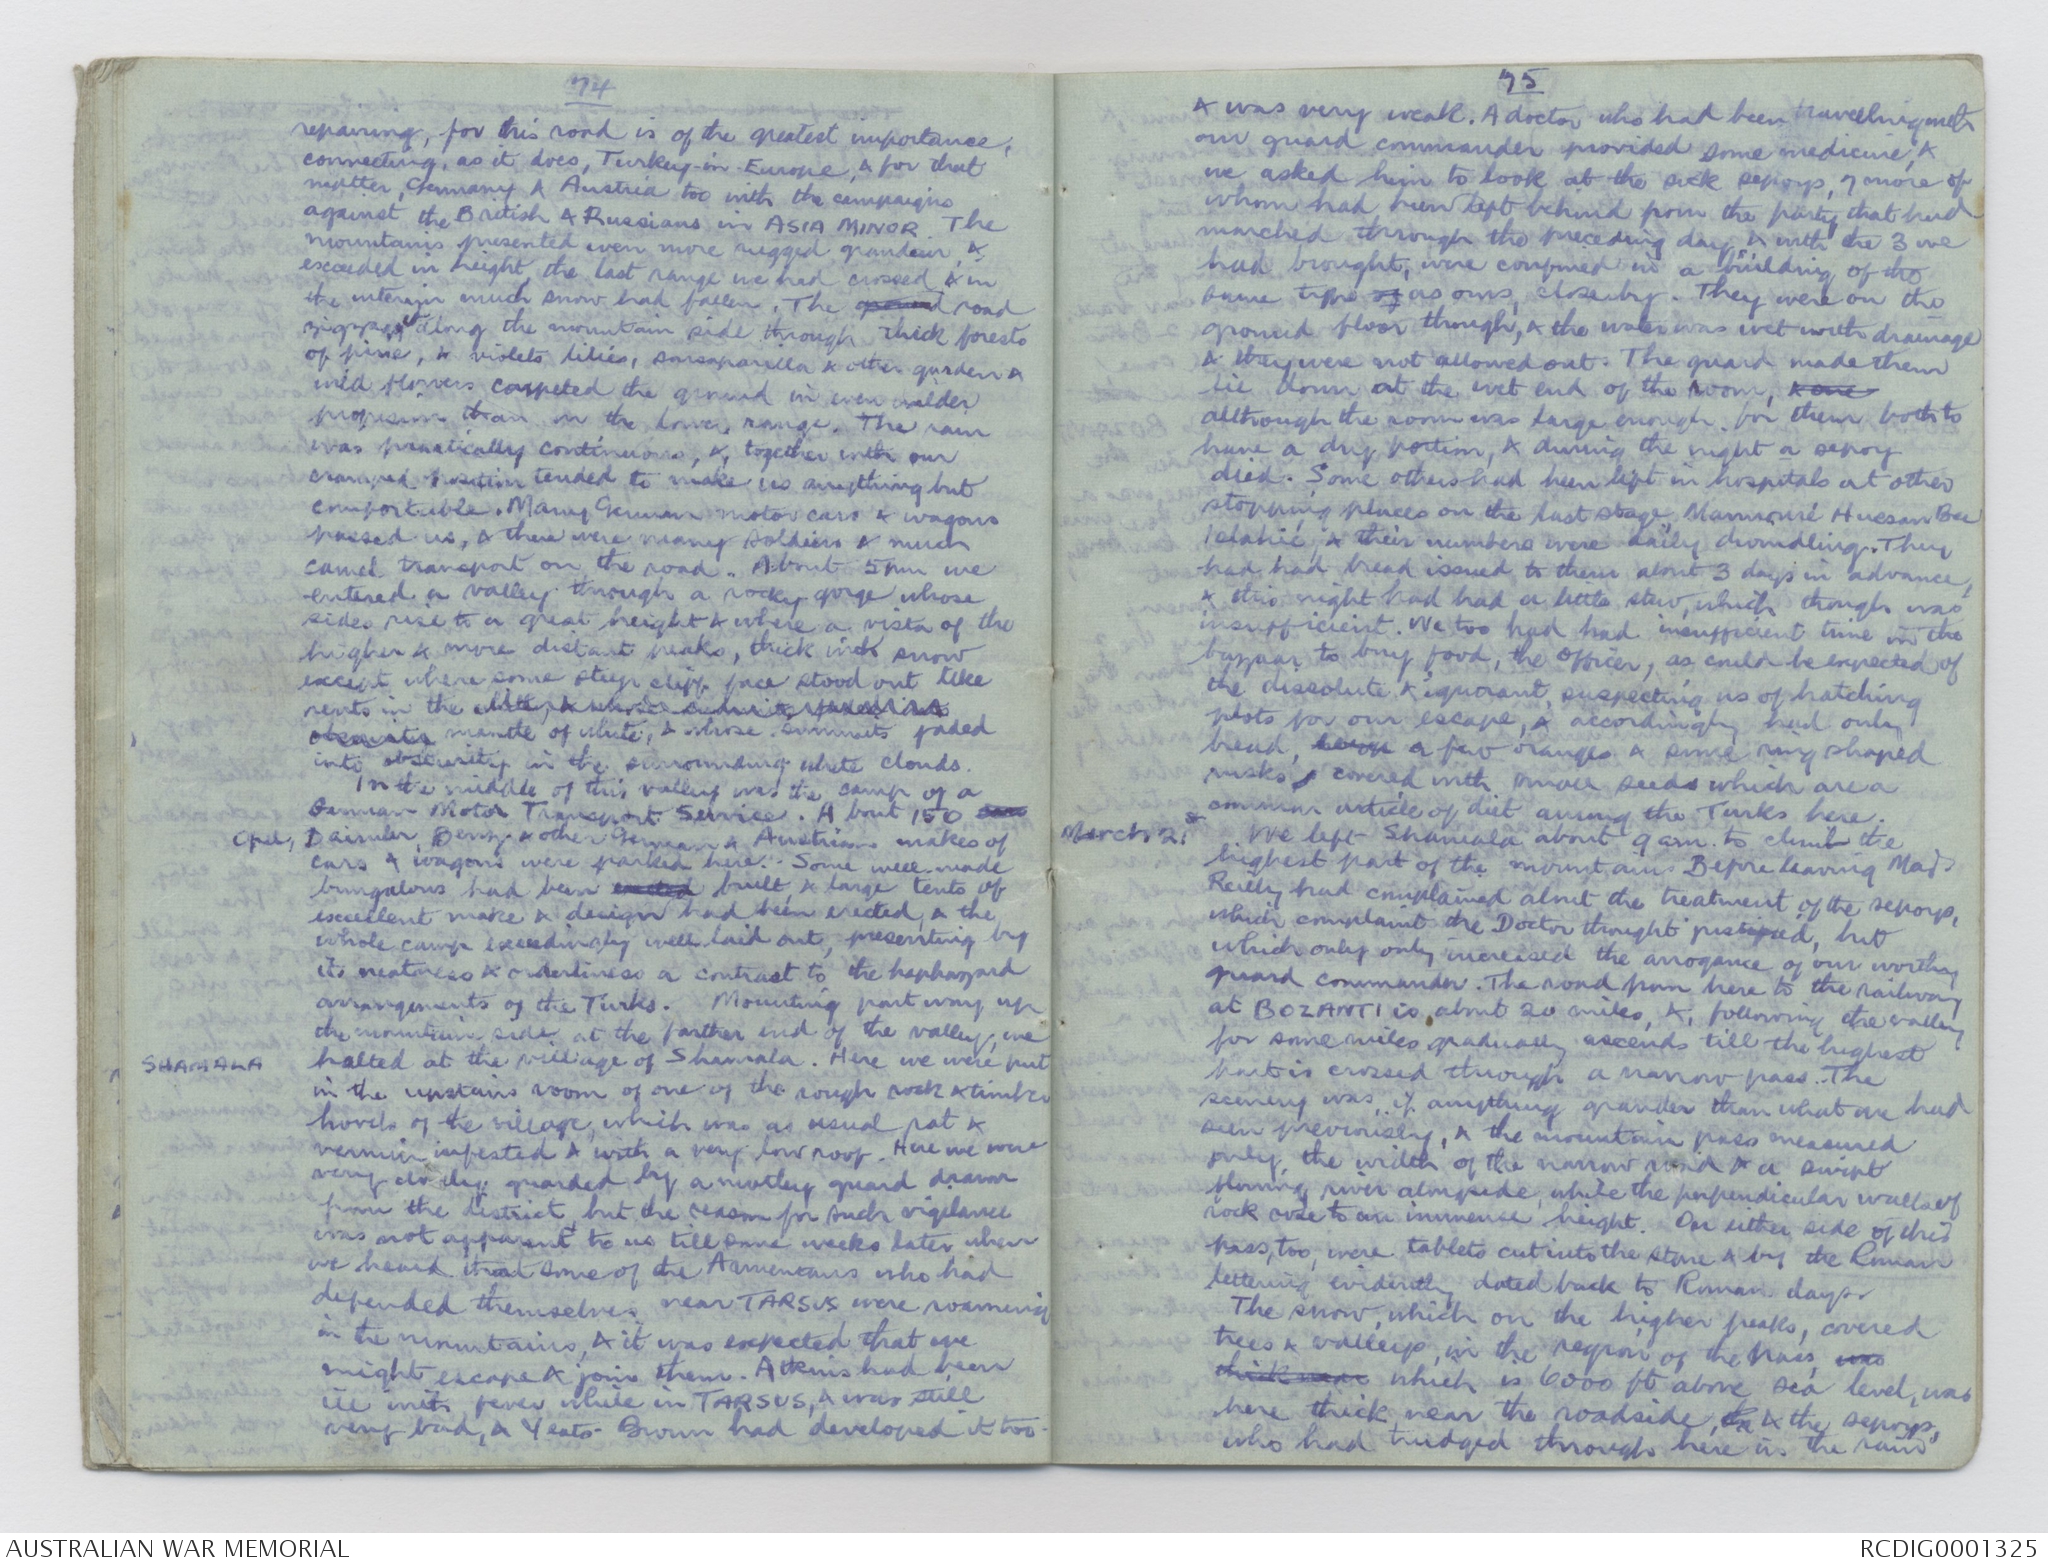 74
repairing, for this road is of the greatest importance,
connecting, as it does, Turkey-in-Europe, & for that
matter, Germany & Austria too with the campaigns
against the British & Russians in ASIA MINOR. The
mountains presented even more rugged grandeur, &
exceeded in height the last range we had crossed & in
the interim much snow had fallen. The road
zigzagged along the mountain side through thick forests
of pine, & violets lilies, sarsaparilla & other garden &
wild flowers carpeted the ground in even wilder
profusion than in the lower range. The rain
was practically continuous, &, together with our
cramped position tended to make us anything but
comfortable. Many German motor cars & wagons
passed us, & there were many soldiers & much
camel transport on the road. About 5pm we
entered a valley through a rocky gorge whose
sides rise to a great height & where a vista of the
higher & more distant peaks, thick with snow
except where some steep cliff face stood out like
rents in the
mantle of white, & whose summits faded
into obscurity in the surrounding white clouds.
In the middle of this valley was the camp of a
German Motor Transport Service. About 150
Opel, Daimler, Benz & other German & Austrian makes of
cars & wagons were parked here. Some well-made
bungalows had been built & large tents of
excellent make & design had been erected, & the
whole camp exceedingly well laid out, presenting by
its neatness & orderliness a contrast to the haphazard
arrangements of the Turks. Mounting part way up
the mountain side at the farther end of the valley, we
SHAMALA halted at the village of Shamala. Here we were put
in the upstairs room of one of the rough rock & timber
hovels of the village, which was as usual rat &
vermin infested & with a very low roof. Here we were
very closely guarded by a motley guard drawn
from the district, but the reason for such vigilance
was not apparent to us till some weeks later when
we heard that some of the Armenians who had
defended themselves near TARSUS were roaming
in the mountains, & it was expected that we
might escape & join them. Atkins had been
ill with fever while in TARSUS, & was still
very bad, & Yeats-Brown had developed it too
75
& was very weak. A doctor who had been travelling with
our guard commander provided some medicine, &
we asked him to look at the sick sepoys, 7 more of
whom had been left behind from the party that had
marched through the preceding day, & with the 3 we
had brought, were confined in a building of the
same type as ours, close by. They were on the
ground floor though, & the water was wet with drainage
& they were not allowed out. The guard made them
lie down at the wet end of the room,
although the room was large enough for them both to
have a dry portion, & during the night a sepoy
died. Some others had been left in hospitals at other
stopping places on the last stage, Mamourié Hassan Bee
Islahie, & their numbers were daily dwindling. They
had had bread issued to them about 3 days in advance,
& this night had had a little stew, which though was
insufficient. We too had had insufficient time in the
bazzaar to buy food, the officer, as could be expected of
the dissolute & ignorant, suspecting us of hatching
plots for our escape, & accordingly had only
bread, a few oranges & some ring shaped
rusks, covered with small seeds which are a
common article of diet among the Turks here.
March 21st We left Shamala about 9 am. to climb the
highest part of the mountains. Before leaving Maj.
Reilly had complained about the treatment of the sepoys,
which complaint the Doctor thought justified, but
which only only increased the arrogance of our worthy
guard commander. The road from here to the railway
at BOZANTI is about 20 miles, &, following the valley
for some miles gradually ascends till the highest
part is crossed through a narrow pass. The
scenery was, if anything grander than what we had
seen previously, & the mountain pass measured
only the width of the narrow road & a swift
flowing river alongside, while the perpendicular walls of
rock rose to an immense height. On either side of this
pass, too, were tablets cut into the stone & by the Roman
lettering evidently dated back to Roman days.
The snow, which on the higher peaks, covered
trees & valleys, in the region of the pass,
which is 6000 ft above sea level, was
here thick near the roadside, & the sepoys,
who had trudged through here in the rain
AUSTRALIAN WAR MEMORIAL
RCDIG0001325